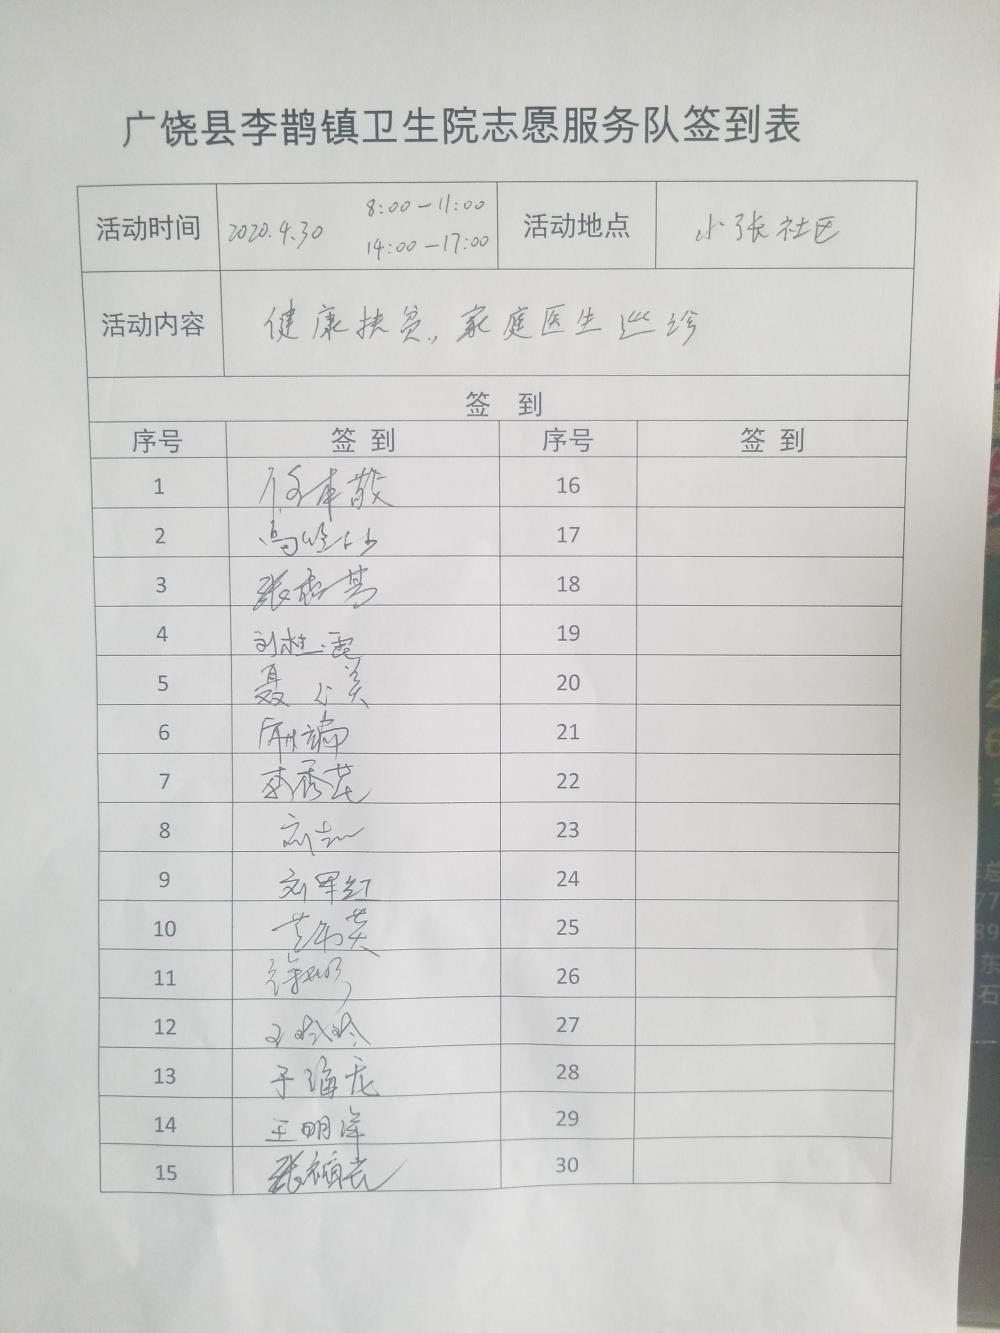 广饶县李鹊镇卫生院志愿服务队签到表
活动时间 2020.4.30 8:00—11:00 14:00—17:00 活动地点 小张社区
活动内容 健康扶贫,家庭医生巡诊
签 到
序号 签到 序号 签到
1 16
2 17
3 18
4 19
5 聂 美 20
6 21
7 李秀花 22
8 刘 23
9 刘军红 24
10 英 25
11 徐 26
12 王玲玲 27
13 于海龙 28
14 王明洋 29
15 张 30
总
77
89
东
石